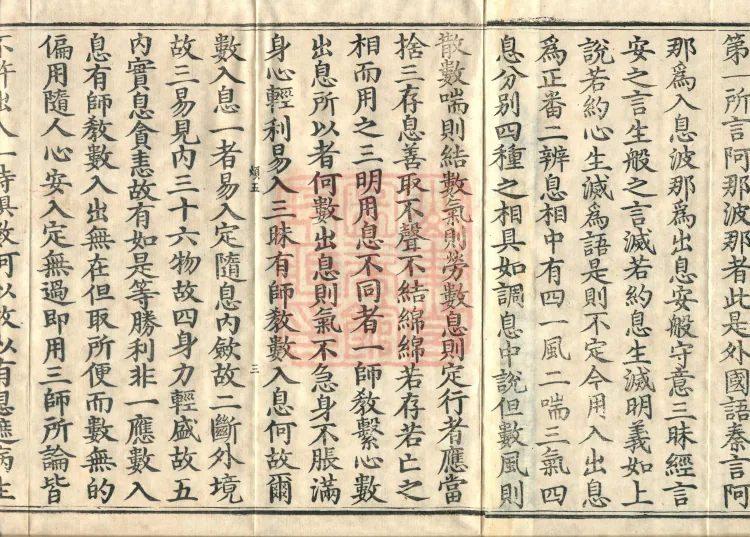 第一所言阿那波那者此是外國語秦言阿
那爲入息波那爲出息安般守意三昧經言
安之言生般之言滅若約息生滅明義如上
說若約心生滅爲語是則不定今用入出息
爲正畨二辨息相中有四一風二喘三氣四
息分別四種之相具如調息中說但數風則
散數喘則結數氣則勞數息則定行者應當
捨三存息善取不聲不結綿綿若存若亡之
相而用之三明用息不同者一師敎繫心數
出息所以者何數出息則氣不急身不脹滿
身心輕利易入三昧有師敎數入息何故爾
三
數入息一者易入定隨息內斂故二斷外境
故三易見內三十六物故四身力輕盛故五
內實息貪恚故有如是等勝利非一應數入
息有師敎數入出無在但取所便而數無的
偏用隨人心安入定無過即用三師所論皆
不許出入一時俱數何以故以有息遮病生